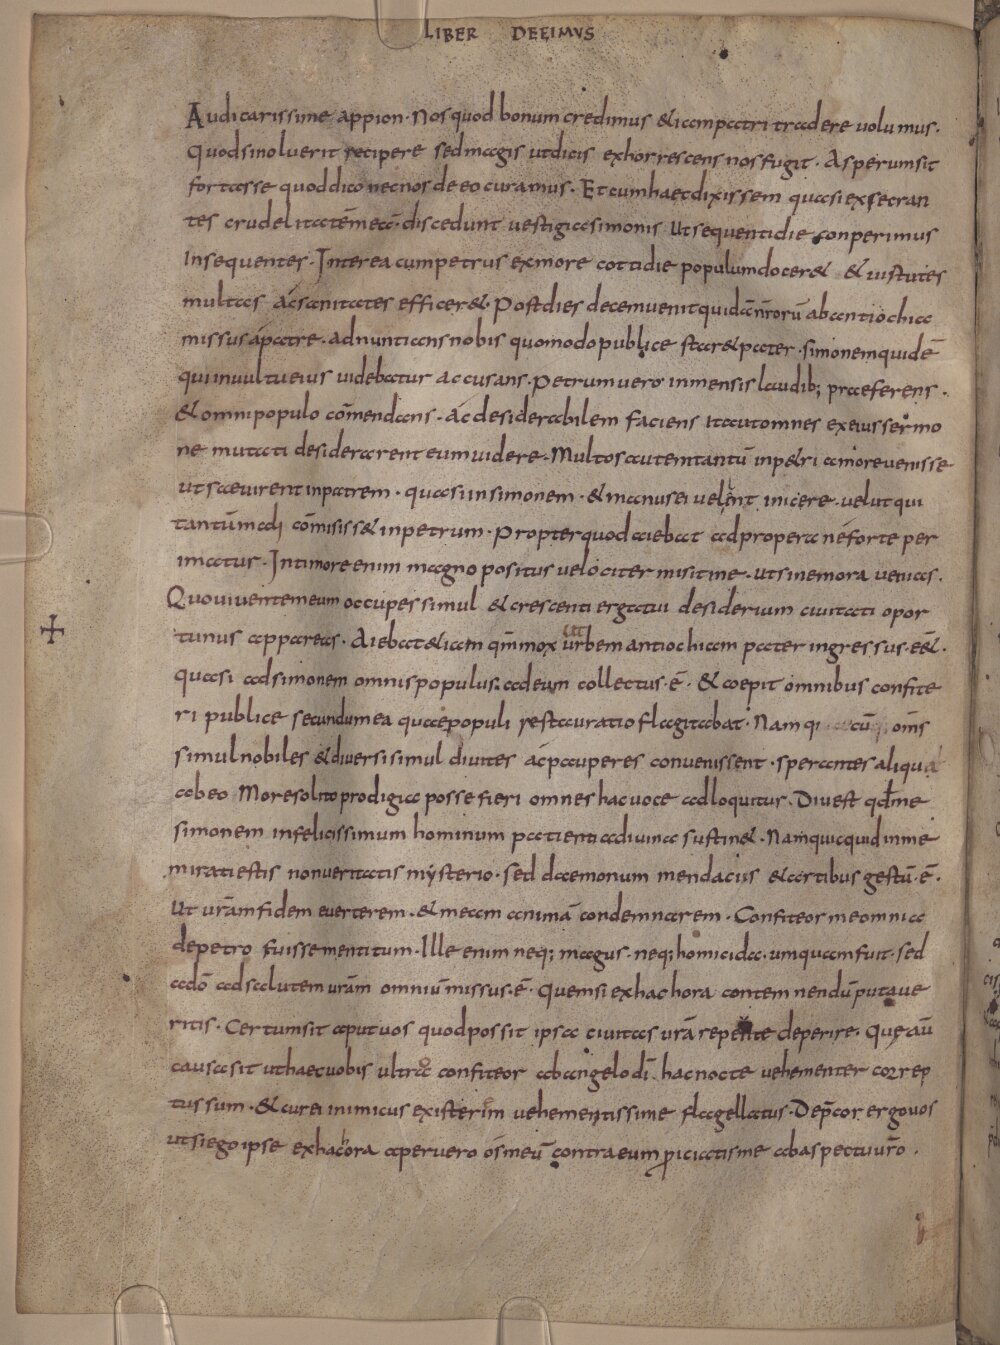 LIBER DECIMVS
Audi carissime appion. Nos quod bonum credimus & iam patri tradere volumus.
Quod si noluerit recipere sed magis ut dicis exhorrescens nos fugit. Asperum sit
fortasse quod dico nec nos de eo curamus. Et cum haec dixissem quasi exsecran
tes crudelitatē meā discedunt vestigia simonis Ut sequenti die conperimus
Insequentes. Interea cum petrus ex more cottidie populum docer& & virtutes
multas ac sanitates efficer&. Post dies decem venit quidā nrorū ab antiochia
missus a patre. adnuntians nobis quomodo publice star& pater. simonem quidē
qui in vultu eius videbatur accusans. Petrum vero inmensis laudib; praeferens.
& omni populo cōmendans. Ac desiderabilem faciens ita ut omnes ex eius sermo
ne mutati desiderarent eum videre. Multos autem tantū in p&ri amore venisse
ut saevirent in patrem. quasi in simonem. & manus ei velent inicere. velut qui
tantūm adi cōmisiss& in petrum. Propter quod aiebat ad propera ne forte per
imatus. In timore enim magno positus velociter misit me. ut sine mora venias.
Quo viventem eum occupes simul & crescenti erga tui desiderium civitati opor
tunus appareas. Aiebat & iam qm̄ mox ut urbem antiochiam pater ingressus. e&.
quasi ad simonem omnis populus ad eum collectus. ē. & coepit omnibus confite
ri publice secundum ea quae populi restauratio flagitabat. Nam cū oms
simul nobiles & diversi simul divites ac pauperes convenissent. sperantes aliqua
ab eo More solito prodigia posse fieri omnes hac voce adloquitus. Diu est qd me
simonem infelicissimum hominum patientia divina sustin&. Nam quicquid in me
mirati estis non veritatis mysterio. sed daemonum mendaciis & artibus gestū. ē.
Ut vram fidem everterem. & meam animā condemnarem. Confiteor me omnia
de petro fuisse mentitum. Ille enim neq; magus. neq; homicida. umquam fuit. sed
a dō ad salutem vram omniū missus. ē. Quem si ex hac hora contemnendū putave
ritis. Certum sit aput vos quod possit ipsa civitas vrā repente deperire. Que aū
causa sit ut haec vobis ultra confiteor ab angelo di. hac nocte vehementer correp
tus sum. & cur ei inimicus existerim vehementissime flagellatus. Depcor ergo vos
ut si ego ipse ex hac hora aperuero os meū contra eum piciatis me ab aspectu vro.